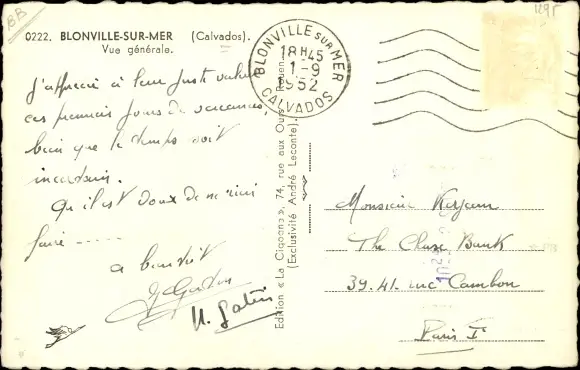 0222. BLONVILLE-SUR-MER (Calvados).
Vue générale.
BLONVILLE SUR MER
18H45
1-9
1952
CALVADOS
J'apprécie à leur juste valeur
ces premiers jours de vacances,
bien que le temps soit
incertain.
Qu'il est doux de ne rien
faire -----
a bientôt
Edition « La Cigogne », 74, rue aux Ours, Rouen
(Exclusivité André Leconte).
Monsieur
The Chase Bank
39.41. rue Cambon
Paris Ier